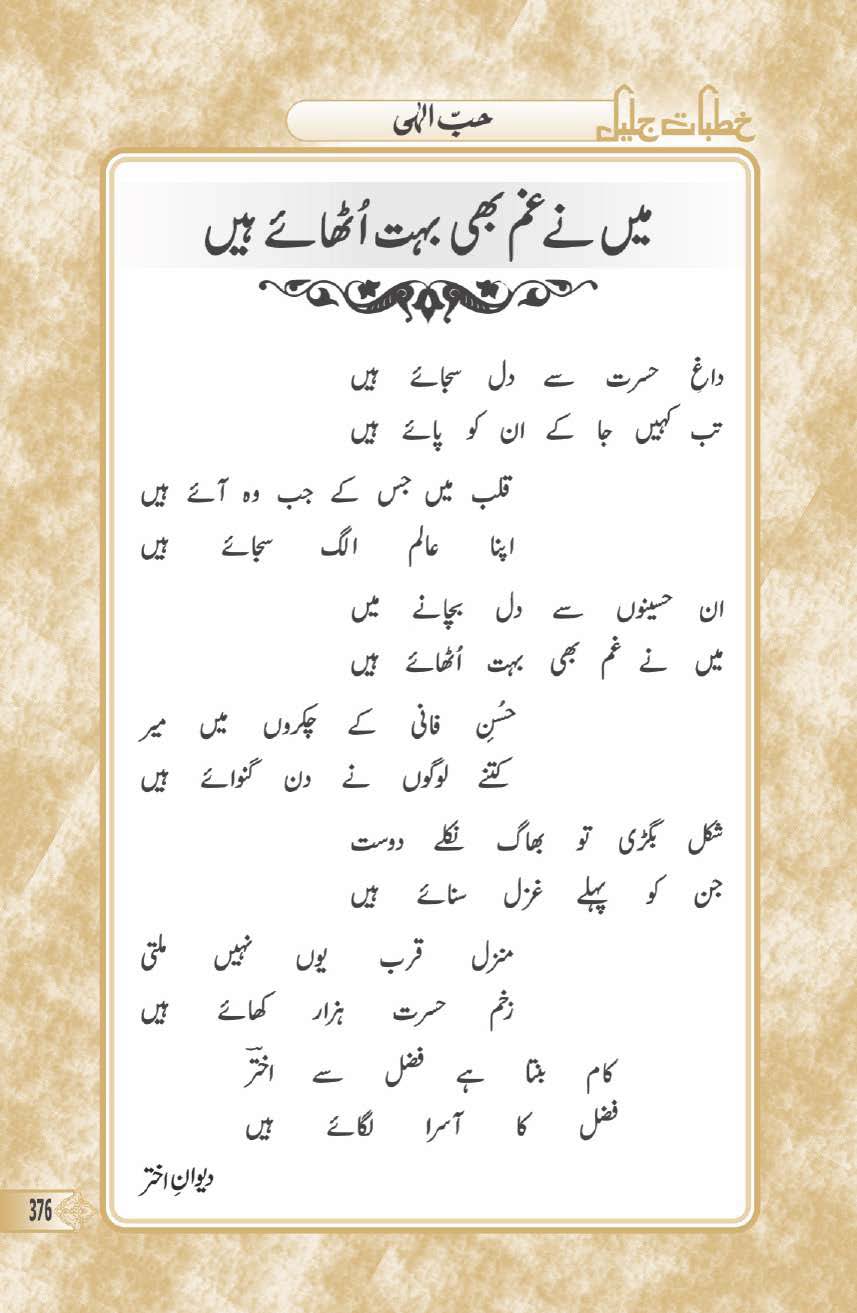 خطباتِ جلیل
حبّ الہٰی
میں نے غم بھی بہت اُٹھائے ہیں
داغِ حسرت سے دل سجائے ہیں
تب کہیں جا کے ان کو پائے ہیں
قلب میں جس کے جب وہ آئے ہیں
اپنا عالم الگ سجائے ہیں
ان حسینوں سے دل بچانے میں
میں نے غم بھی بہت اُٹھائے ہیں
حُسنِ فانی کے چکروں میں میر
کتنے لوگوں نے دن گنوائے ہیں
شکل بگڑی تو بھاگ نکلے دوست
جن کو پہلے غزل سنائے ہیں
منزل قرب یوں نہیں ملتی
زخم حسرت ہزار کھائے ہیں
کام بنتا ہے فضل سے اخترؔ
فضل کا آسرا لگائے ہیں
دیوانِ اختر
376